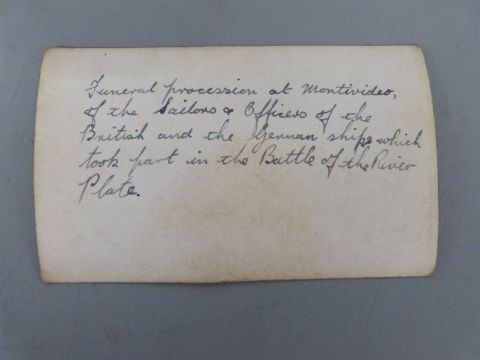 Funeral procession at Montivideo,
of the Sailors & Officers of the
British and the German ships which
took part in the Battle of the River
Plate.